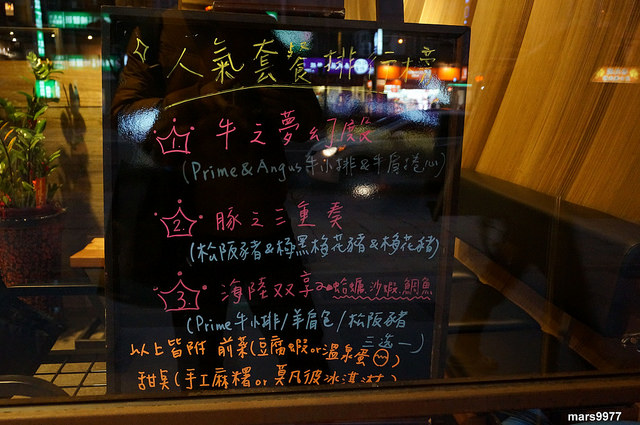 人氣套餐排行榜
1. 牛之夢幻假旅
(Prime&Angus牛小排&牛肩捲心)
2. 豚之三重奏
(松阪豬&極黑梅花豬&梅花豬)
3. 海陸双享 蛤蠣.沙蝦.鯛魚
(Prime牛小排/羊肩包/松阪豬 三選一)
以上皆附 前菜(豆腐蝦or溫泉蛋)
甜臭(手工麻糬or莫凡彼冰淇淋)
mars9977